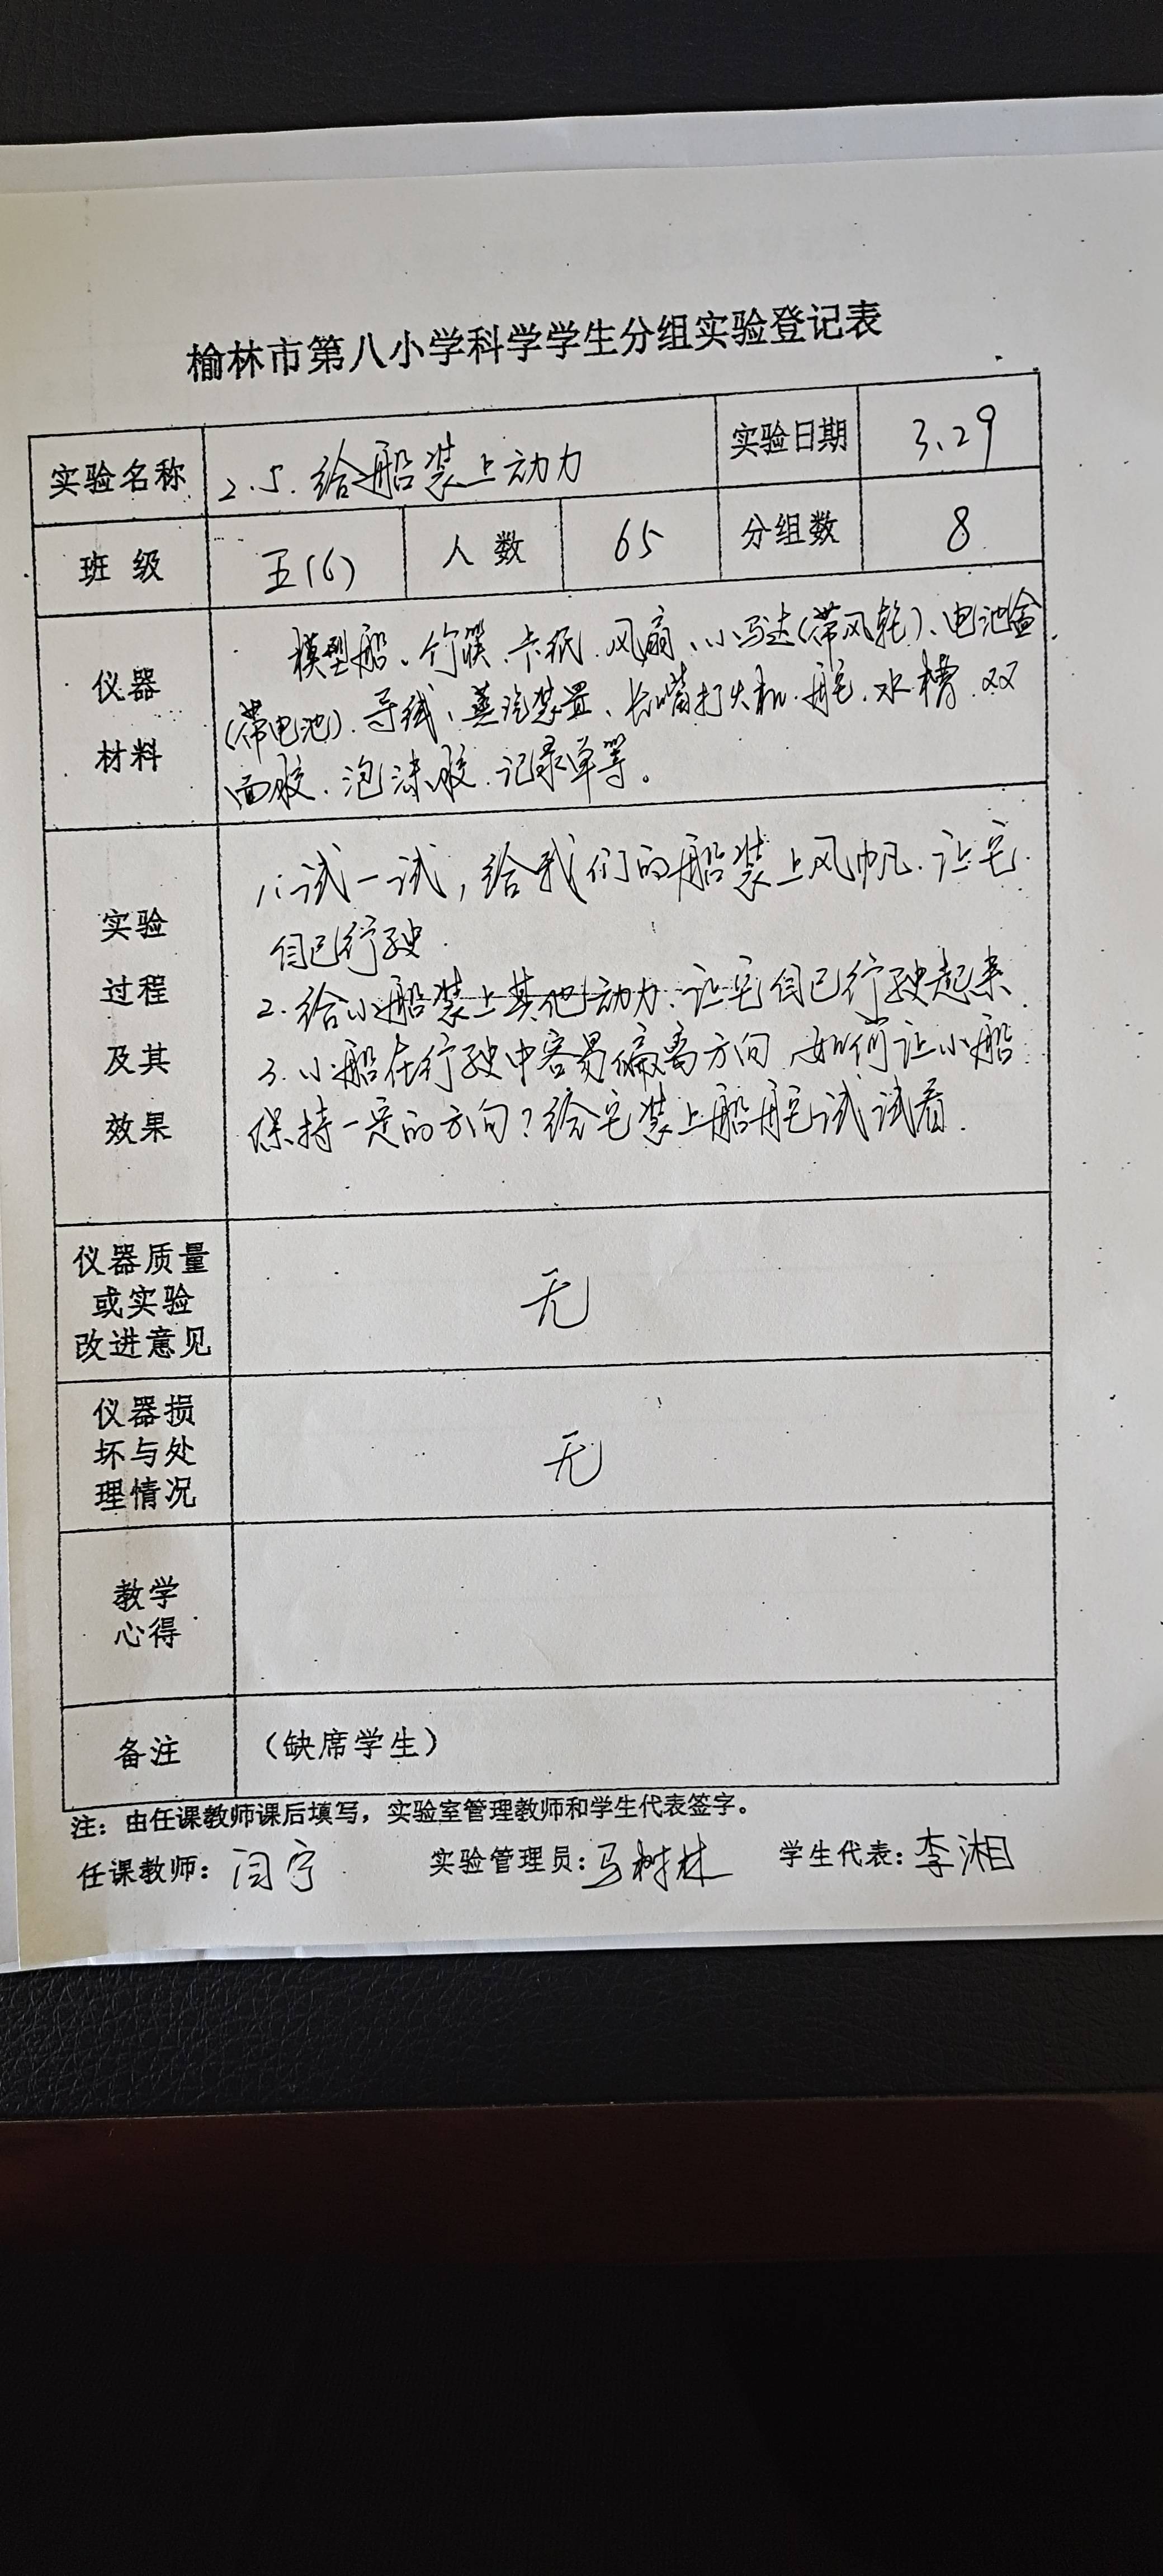 榆林市第八小学科学学生分组实验登记表
实验名称 2.5.给船装上动力 实验日期 3.29
班级 五(6) 人数 65 分组数 8
仪器
材料
模型船、竹筷、卡纸、风扇、小马达(带风轮)、电池盒
(带电池)、导线、蒸汽装置、长嘴打火机、舵、水槽、双
面胶、泡沫胶、记录单等。
实验
过程
及其
效果
1.试一试,给我们的船装上风帆.让它
自已行驶.
2.给小船装上其他动力.让它自已行驶起来.
3.小船在行驶中容易偏离方向.如何让小船
保持一定的方向?给它装上船舵试试看.
仪器质量
或实验
改进意见
无
仪器损
坏与处
理情况
无
教学
心得
备注 (缺席学生)
注:由任课教师课后填写,实验室管理教师和学生代表签字。
任课教师: 闫宁 实验管理员: 马树林 学生代表: 李湘